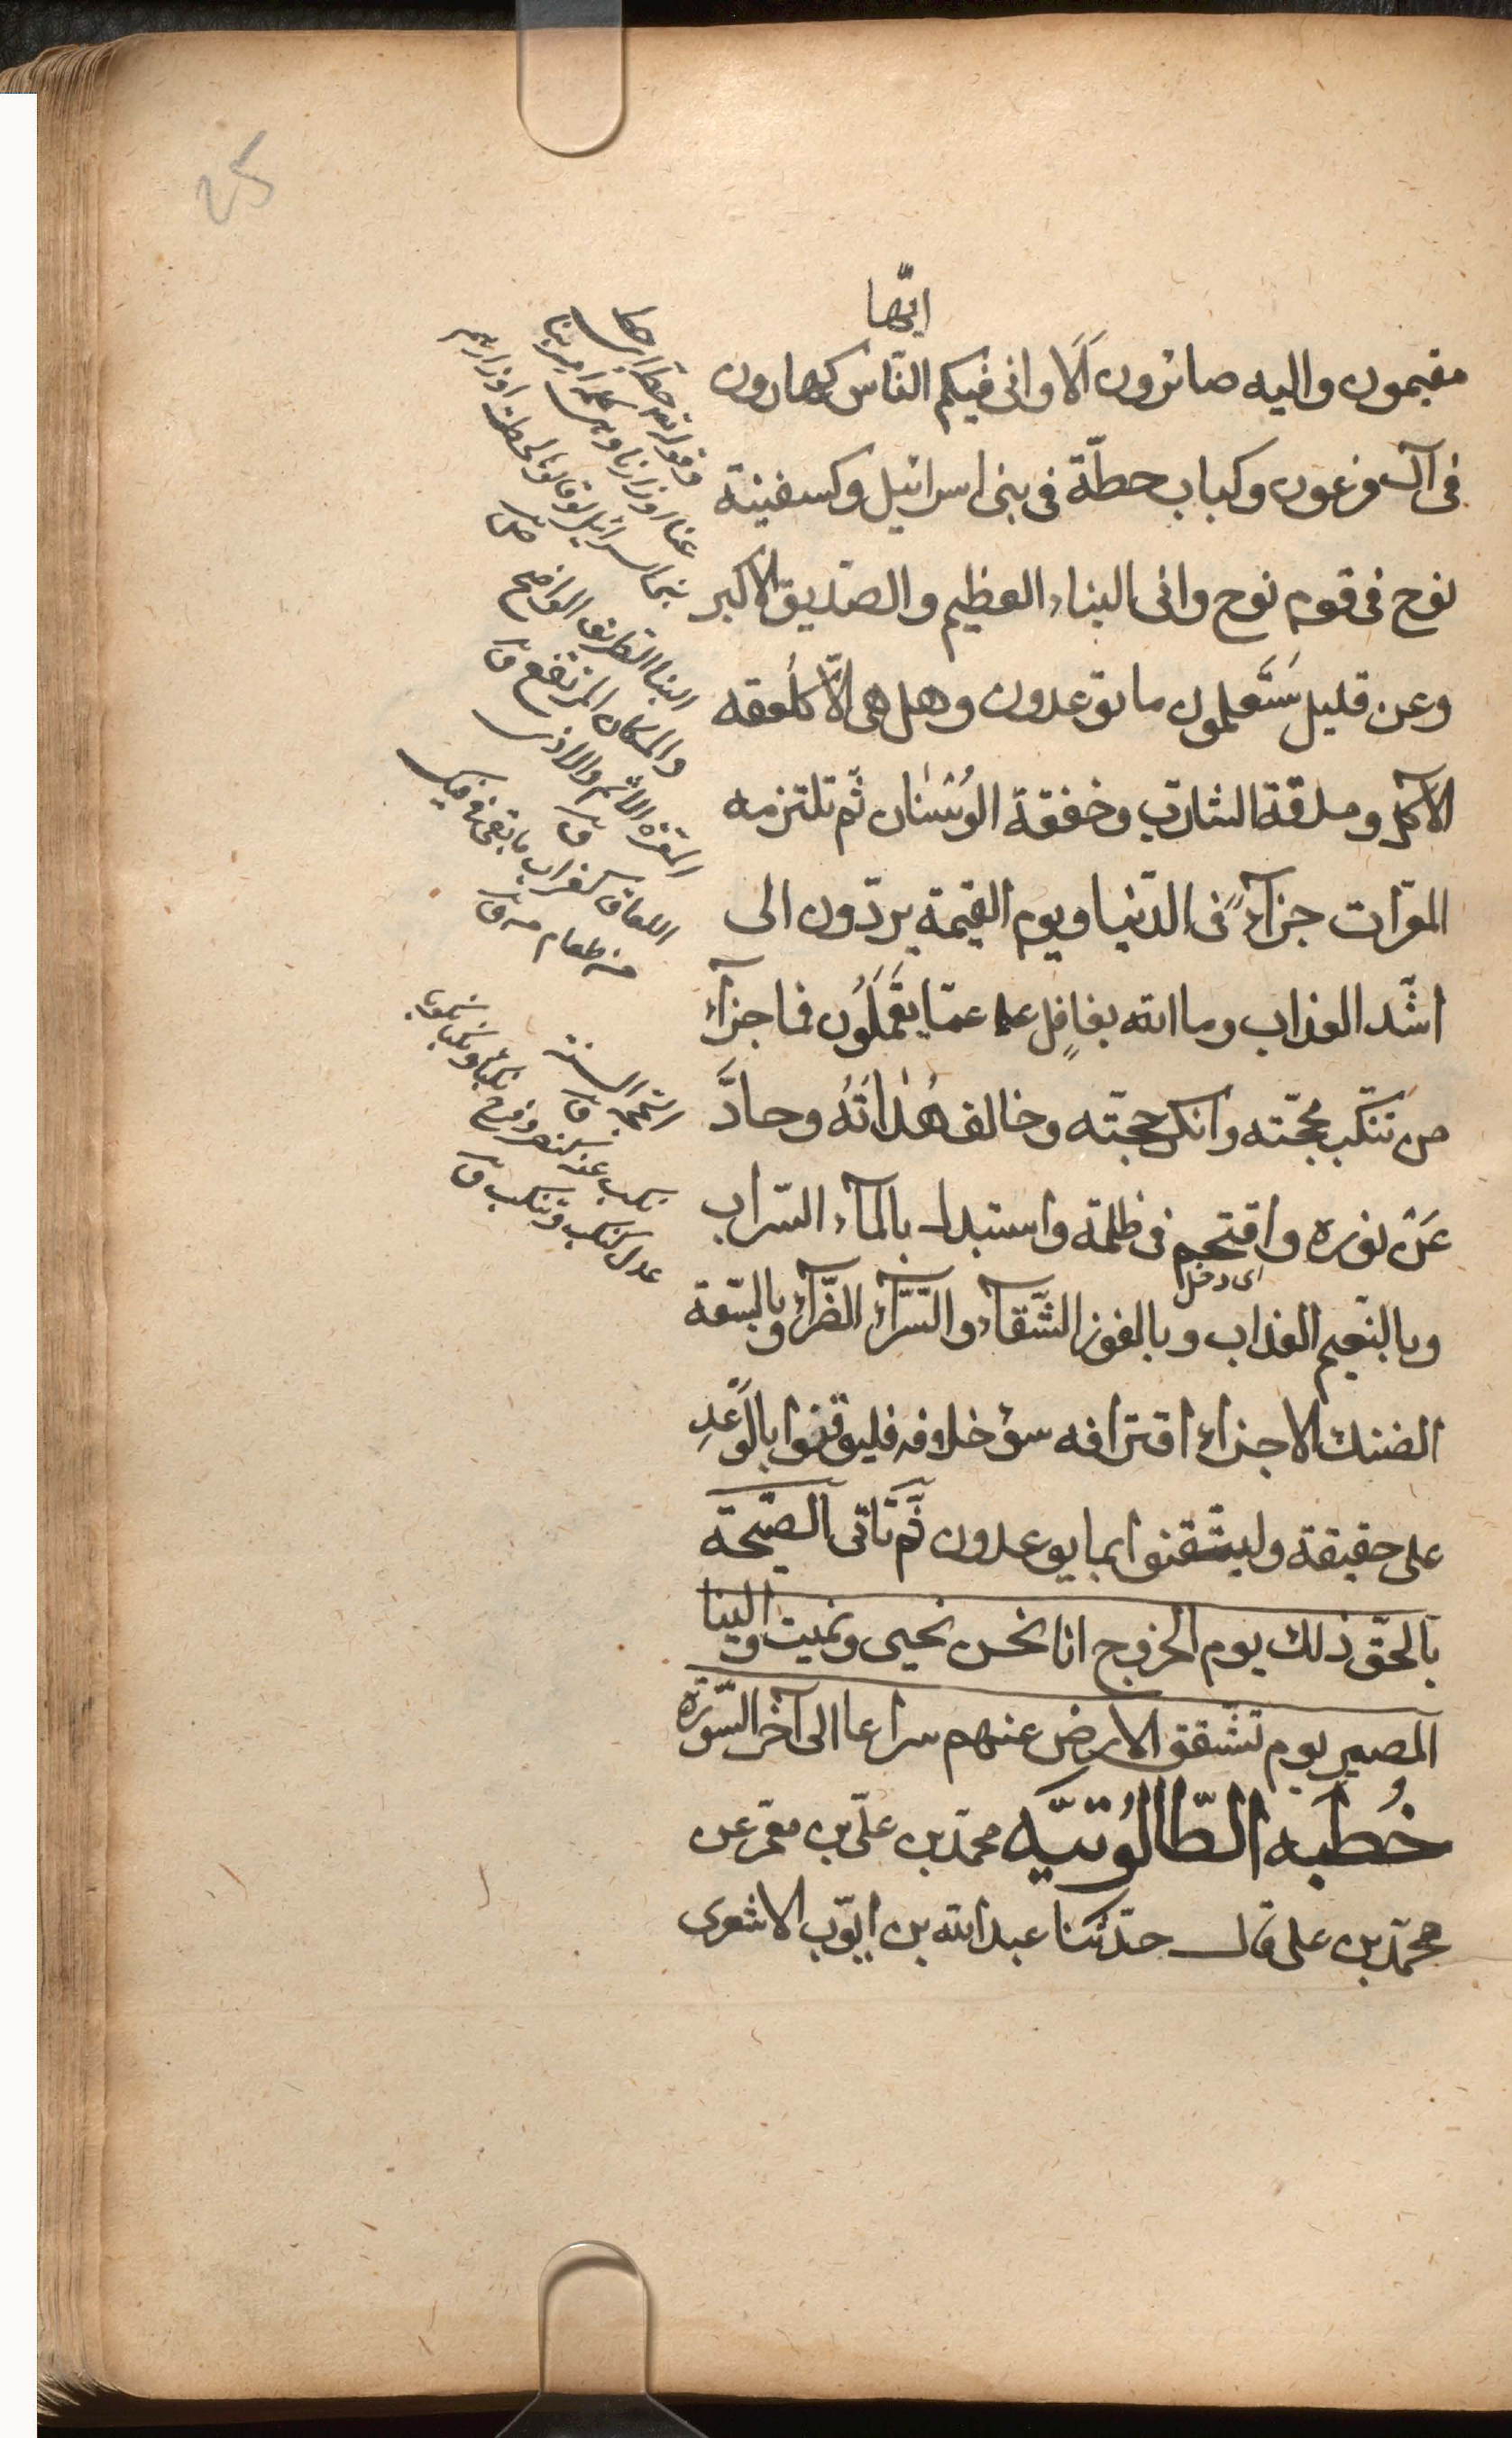 25
ايّها
مقيمون واليه صائرون اَلَا وانى فيكم النّاس كهارون
فى آل فرعون وكباب حطّة فى بنى اسرائيل وكسفينة
نوح فى قوم نوح وانى النباء العظيم والصّديق الاكبر
وعن قليل سَتَعلمون ما توعدون وهل هى الّا كلُعقه
الآكل ومذقة الشارب وخفقة الوَسْنان ثّم تلتزمه
المعّرات جزآءً فى الدّنيا ويوم القيمة يردّون الى
اشّد العذاب وما الله بغافِل عما عمّا يَعْمَلُون فما جزآء
من تنكّب محجّته وانكر حجّته وخالف هُداتُهُ وحادَّ
عَنْ نوره واقتحم فى ظلمة واستبدل بالمآء السّراب
اى دخل
وبالنّعيم العذاب وبالفوز الشّقآء والسّرّآء الضّرآء وبالسّعة
الضنك الا جزاء اقترافه سوء خلافه فليوقنوا بالوَعْدِ
على حقيقة وليستيقنوا بما يوعدون ثَّم تَاتى الصّيحَة
بالحّق ذلك يوم الخروج انا نحن نحيى ونميت والينا
المصير يوم تشّقق الارض عنهم سراعا الى آخر السّورة
خُطبه الطّالُوتيَّه محمّد بن علّى بن معمّر عن
محمّد بن على قال حدّثنا عبد الله بن ايّوب الاشعرى
عنا اوزارنا
النبا الطريق الواضح
والمكان المرتفع ق
المعرة الاثم والاذى
ق
اللعاق كغراب ما بقى فى فيك
من طعام
ق
عدل كنكب وتنكب ق